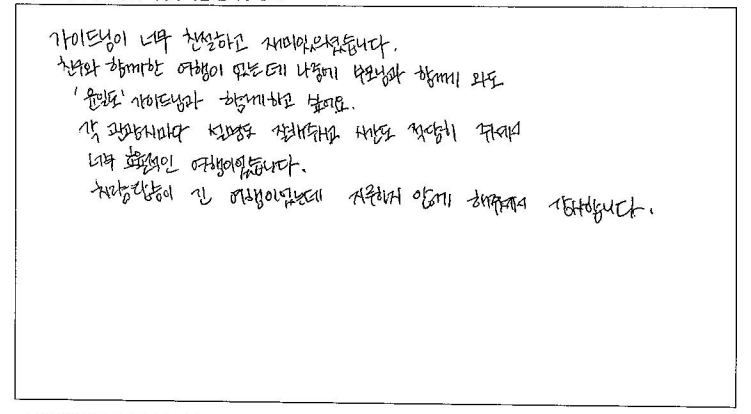 가이드님이 너무 친절하고 재미있으셨습니다.
친구와 함께한 여행이 었는데 나중에 부모님과 함께 와도
'윤일도' 가이드님과 함께하고 싶어요.
각 관광지마다 설명도 잘해주시고 시간도 적당히 주셔서
너무 효율적인 여행이었습니다.
차량탑승이 긴 여행이었는데 지루하지 않게 해주셔서 감사합니다.